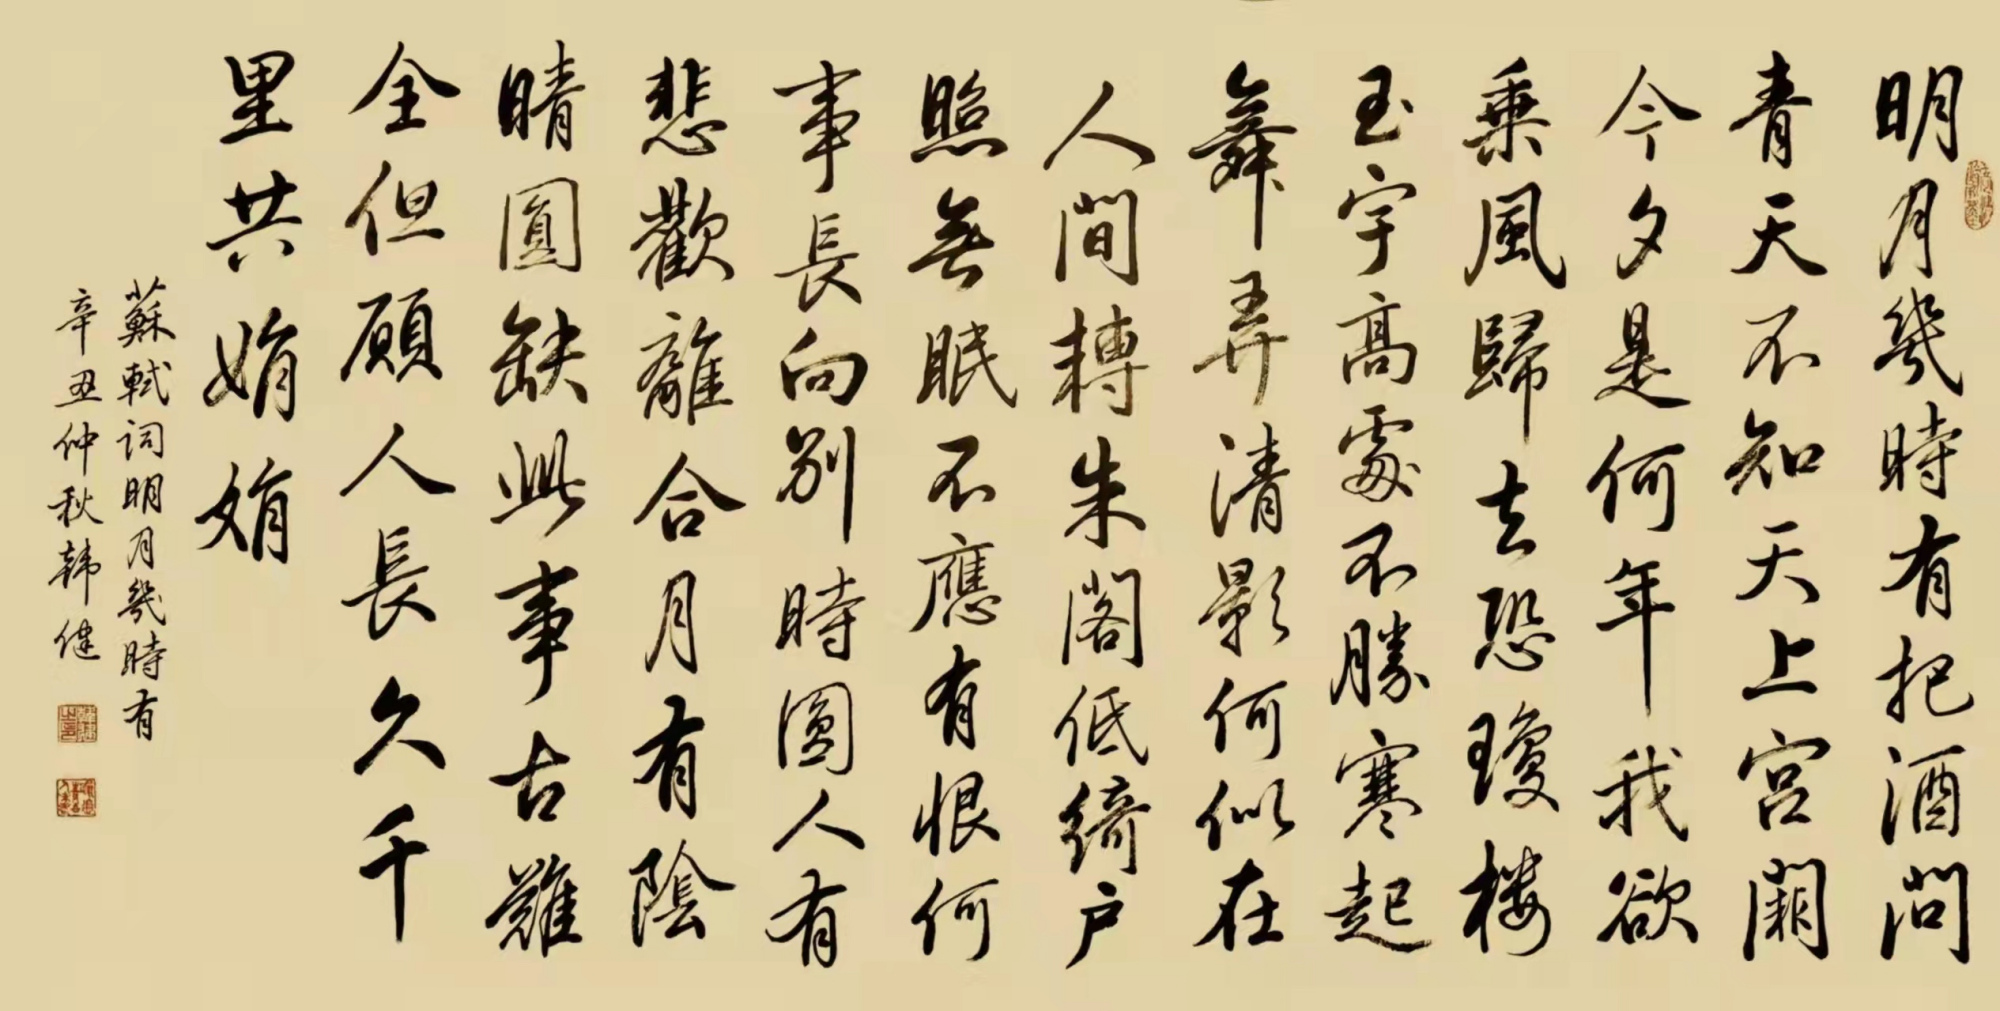 明月幾時有把酒問
青天不知天上宮闕
今夕是何年我欲
乗風歸去恐瓊楼
玉宇高處不勝寒起
舞弄清影何似在
人間轉朱閣低綺户
照無眠不應有恨何
事長向别時圓人有
悲歡離合月有陰
晴圓缺此事古難
全但願人長久千
里共娟娟
蘇軾词明月幾時有
辛丑仲秋韩健